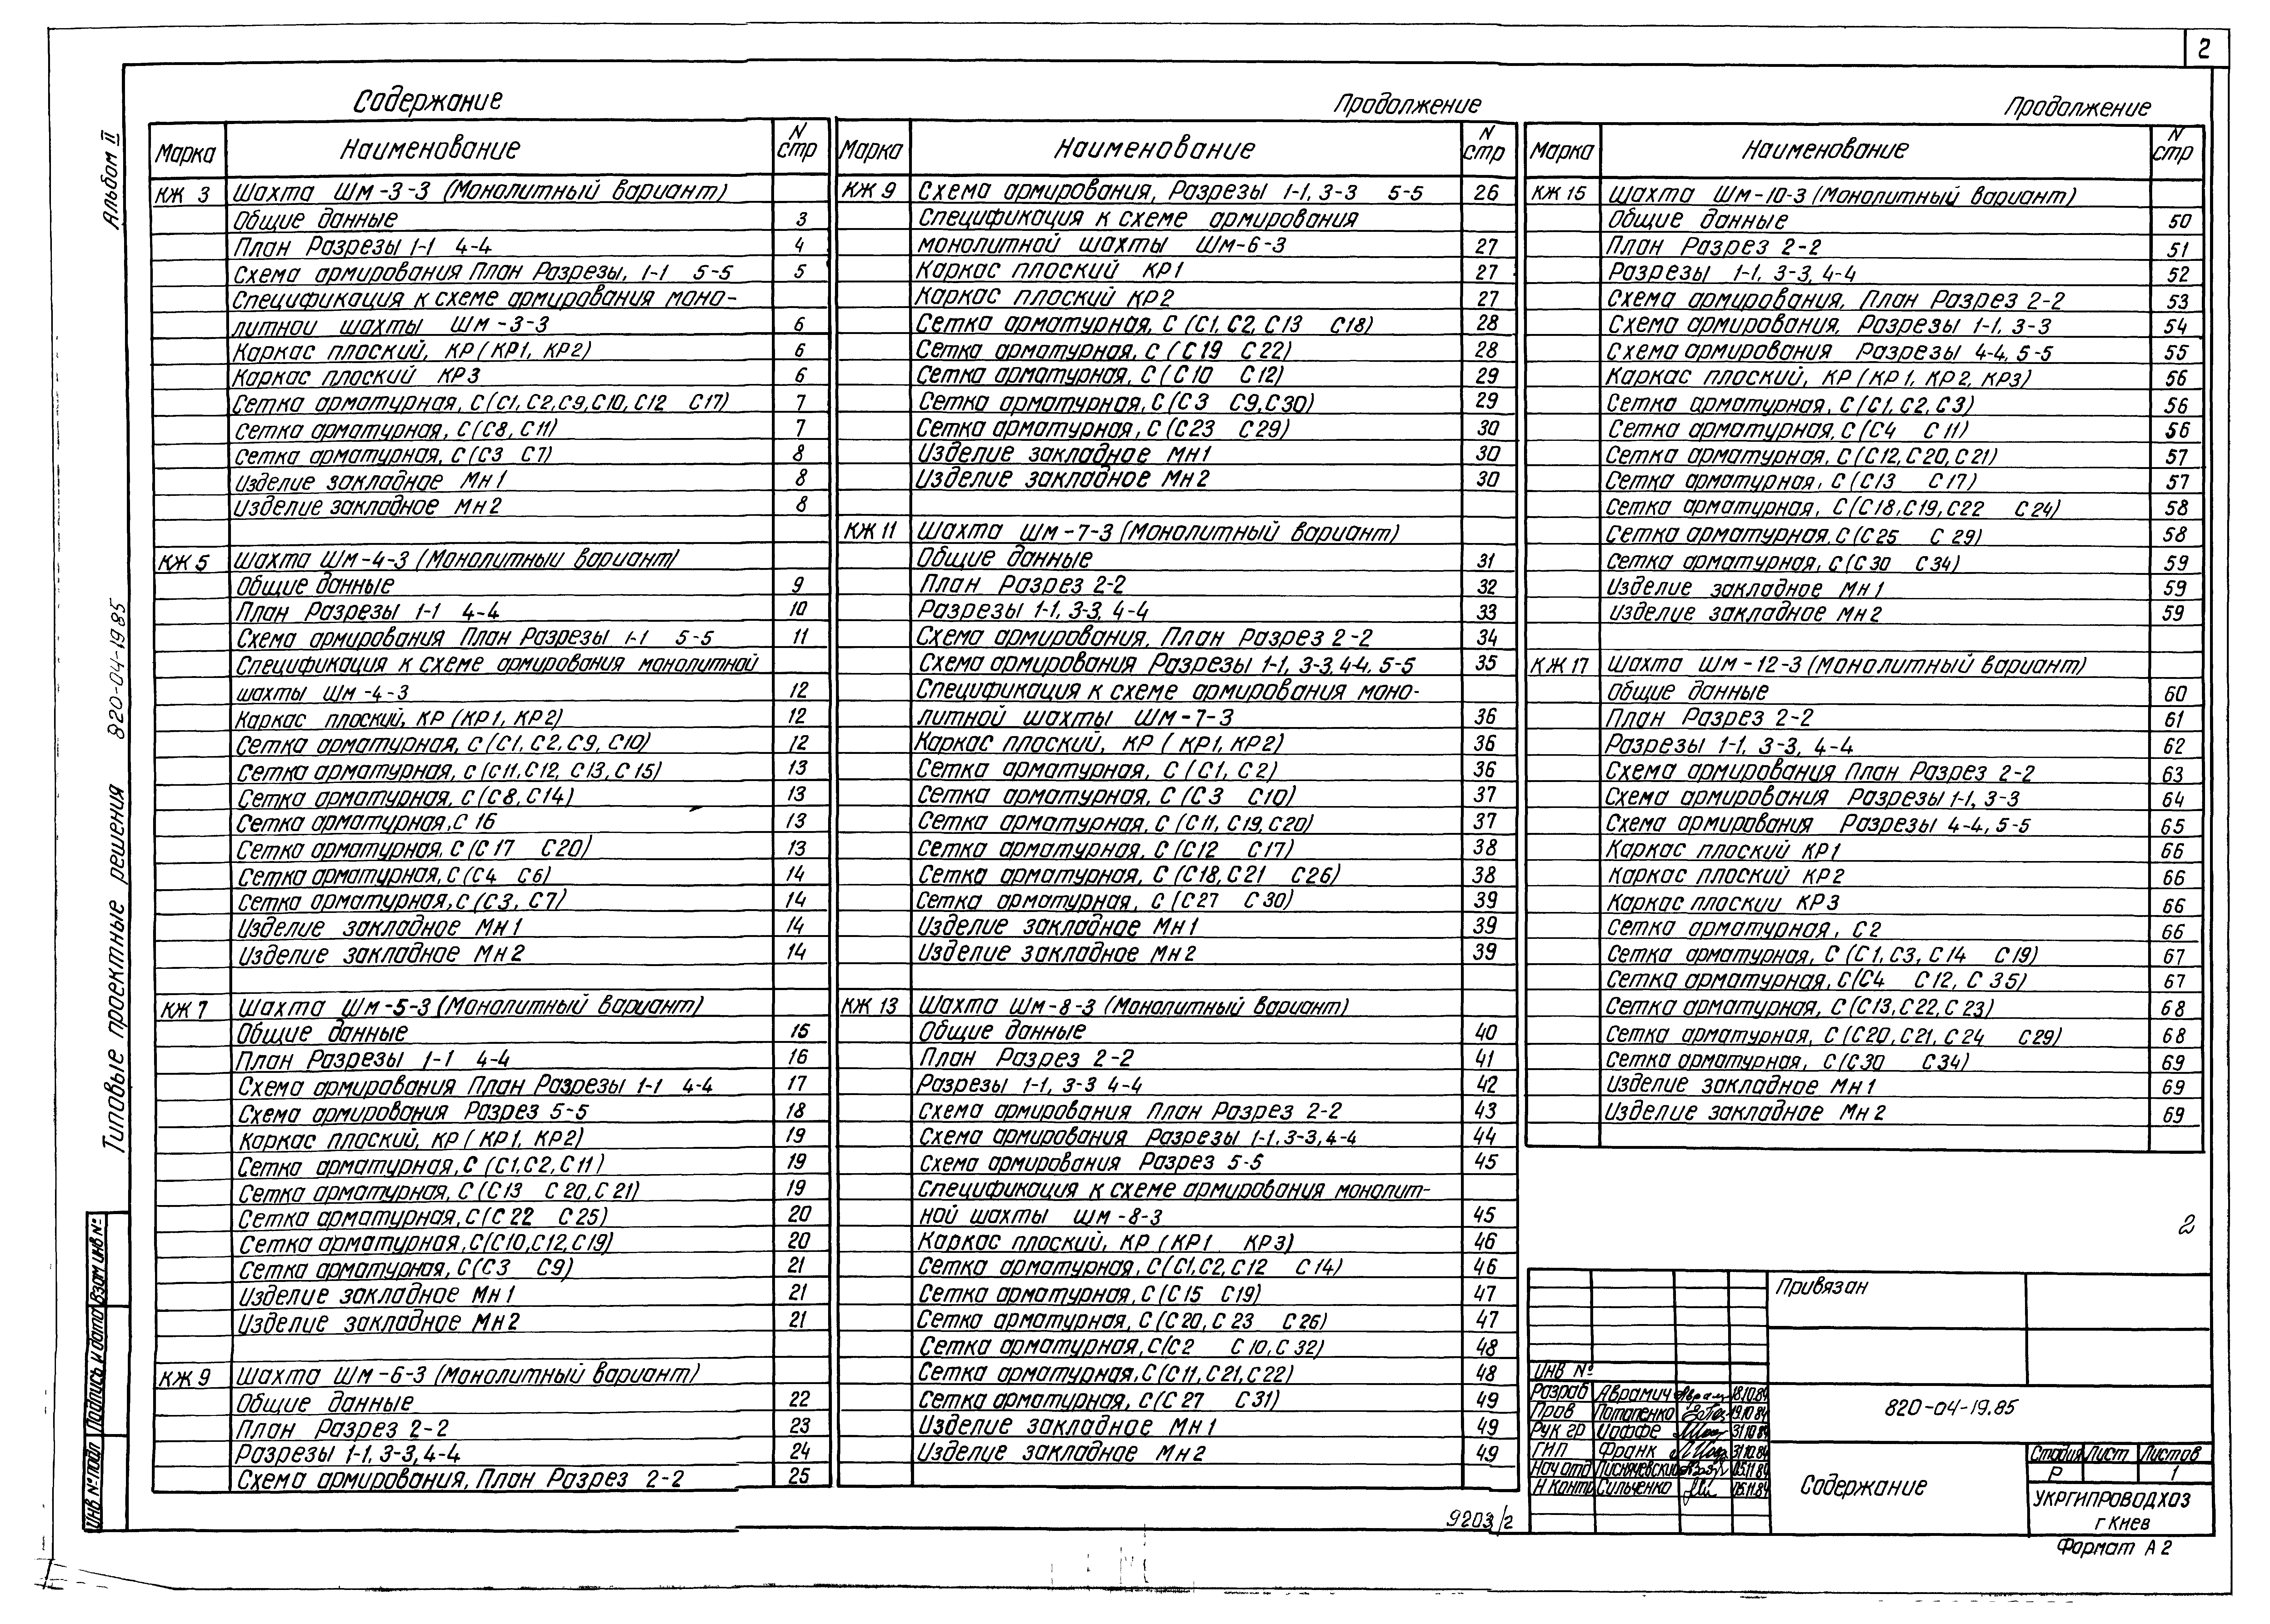 2
Содержание
Марка Наименование N стр
КЖ 3 Шахта Шм-3-3 (Монолитный вариант)
Общие данные 3
План Разрезы 1-1 4-4 4
Схема армирования План Разрезы, 1-1 5-5 5
Спецификация к схеме армирования моно-
литной шахты Шм-3-3 6
Каркас плоский, КР (КР1, КР2) 6
Каркас плоский КР3 6
Сетка арматурная, С (С1, С2, С9, С10, С12 С17) 7
Сетка арматурная, С (С8, С11) 7
Сетка арматурная, С (С3 С7) 8
Изделие закладное Мн1 8
Изделие закладное Мн2 8
КЖ 5 Шахта Шм-4-3 (Монолитный вариант)
Общие данные 9
План Разрезы 1-1 4-4 10
Схема армирования План Разрезы 1-1 5-5 11
Спецификация к схеме армирования монолитной
шахты Шм-4-3 12
Каркас плоский, КР (КР1, КР2) 12
Сетка арматурная, С (С1, С2, С9, С10) 12
Сетка арматурная, С (С11, С12, С13, С15) 13
Сетка арматурная, С (С8, С14) 13
Сетка арматурная, С 16 13
Сетка арматурная, С (С 17 С20) 13
Сетка арматурная, С (С4 С6) 14
Сетка арматурная, С (С3, С7) 14
Изделие закладное Мн1 14
Изделие закладное Мн2 14
КЖ 7 Шахта Шм-5-3 (Монолитный вариант)
Общие данные 15
План Разрезы 1-1 4-4 16
Схема армирования План Разрезы 1-1 4-4 17
Схема армирования Разрез 5-5 18
Каркас плоский, КР (КР1, КР2) 19
Сетка арматурная, С (С1, С2, С11) 19
Сетка арматурная, С (С13 С20, С21) 19
Сетка арматурная, С (С 22 С25) 20
Сетка арматурная, С (С10, С12, С19) 20
Сетка арматурная, С (С3 С9) 21
Изделие закладное Мн1 21
Изделие закладное Мн2 21
КЖ 9 Шахта Шм-6-3 (Монолитный вариант)
Общие данные 22
План Разрез 2-2 23
Разрезы 1-1, 3-3, 4-4 24
Схема армирования, План Разрез 2-2 25
Продолжение
Марка Наименование N стр
КЖ 9 Схема армирования, Разрезы 1-1, 3-3 5-5 26
Спецификация к схеме армирования
монолитной шахты Шм-6-3 27
Каркас плоский КР1 27
Каркас плоский КР2 27
Сетка арматурная, С (С1, С2, С13 С18) 28
Сетка арматурная, С (С19 С22) 28
Сетка арматурная, С (С10 С12) 29
Сетка арматурная, С (С3 С9, С30) 29
Сетка арматурная, С (С23 С29) 30
Изделие закладное Мн1 30
Изделие закладное Мн2 30
КЖ 11 Шахта Шм-7-3 (Монолитный вариант)
Общие данные 31
План Разрез 2-2 32
Разрезы 1-1, 3-3, 4-4 33
Схема армирования, План Разрез 2-2 34
Схема армирования Разрезы 1-1, 3-3, 4-4, 5-5 35
Спецификация к схеме армирования моно-
литной шахты Шм-7-3 36
Каркас плоский, КР (КР1, КР2) 36
Сетка арматурная, С (С1, С2) 36
Сетка арматурная, С (С3 С10) 37
Сетка арматурная, С (С11, С19, С20) 37
Сетка арматурная, С (С12 С17) 38
Сетка арматурная, С (С18, С21 С26) 38
Сетка арматурная, С (С27 С30) 39
Изделие закладное Мн1 39
Изделие закладное Мн2 39
КЖ 13 Шахта Шм-8-3 (Монолитный вариант)
Общие данные 40
План Разрез 2-2 41
Разрезы 1-1, 3-3 4-4 42
Схема армирования План Разрез 2-2 43
Схема армирования Разрезы 1-1, 3-3, 4-4 44
Схема армирования Разрез 5-5 45
Спецификация к схеме армирования монолит-
ной шахты Шм-8-3 45
Каркас плоский, КР (КР1 КР3) 46
Сетка арматурная, С (С1, С2, С12 С14) 46
Сетка арматурная, С (С15 С19) 47
Сетка арматурная, С (С20, С23 С26) 47
Сетка арматурная, С (С2 С10, С32) 48
Сетка арматурная, С (С11, С21, С22) 48
Сетка арматурная, С (С27 С31) 49
Изделие закладное Мн1 49
Изделие закладное Мн2 49
Продолжение
Марка Наименование N стр
КЖ 15 Шахта Шм-10-3 (Монолитный вариант)
Общие данные 50
План Разрез 2-2 51
Разрезы 1-1, 3-3, 4-4 52
Схема армирования, План Разрез 2-2 53
Схема армирования, Разрезы 1-1, 3-3 54
Схема армирования Разрезы 4-4, 5-5 55
Каркас плоский, КР (КР1, КР2, КР3) 56
Сетка арматурная, С (С1, С2, С3) 56
Сетка арматурная, С (С4 С11) 56
Сетка арматурная, С (С12, С20, С21) 57
Сетка арматурная, С (С13 С17) 57
Сетка арматурная, С (С18, С19, С22 С24) 58
Сетка арматурная, С (С25 С29) 58
Сетка арматурная, С (С30 С34) 59
Изделие закладное Мн1 59
Изделие закладное Мн2 59
КЖ 17 Шахта Шм-12-3 (Монолитный вариант)
Общие данные 60
План Разрез 2-2 61
Разрезы 1-1, 3-3, 4-4 62
Схема армирования План Разрез 2-2 63
Схема армирования Разрезы 1-1, 3-3 64
Схема армирования Разрезы 4-4, 5-5 65
Каркас плоский КР1 66
Каркас плоский КР2 66
Каркас плоский КР3 66
Сетка арматурная, С2 66
Сетка арматурная, С (С1, С3, С14 С19) 67
Сетка арматурная, С (С4 С12, С35) 67
Сетка арматурная, С (С13, С22, С23) 68
Сетка арматурная, С (С20, С21, С24 С29) 68
Сетка арматурная, С (С30 С34) 69
Изделие закладное Мн1 69
Изделие закладное Мн2 69
2
Привязан
Инв №
Разраб Аврамич 18.10.84
Пров Потапенко 19.10.84
Рук гр Иоффе 31.10.84
ГИП Франк 31.10.84
Нач отд 05.11.84
Н Контр Сильченко 05.11.84
820-04-19.85
Содержание
Стадия Лист Листов
Р 1
УКРГИПРОВОДХОЗ
г Киев
Формат А2
9203/2
Альбом II
Типовые проектные решения 820-04-19 85
Взам инв №
Подпись и дата
Инв № подл